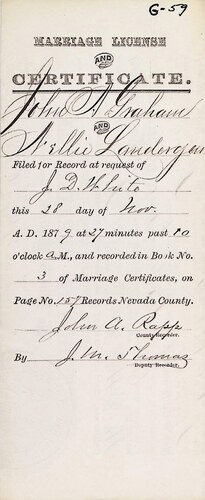 G-59
MARRIAGE LICENSE
AND
CERTIFICATE.
John A Graham
AND
Nellie Landergen
Filed for Record at request of
J. D. White
this 28 day of Nov.
A. D. 1879 at 27 minutes past 10
o'clock A.M., and recorded in Book No.
3 of Marriage Certificates, on
Page No. 157 Records Nevada County.
John A. Rapp
County Recorder.
By J. M. Thomas
Deputy Recorder.